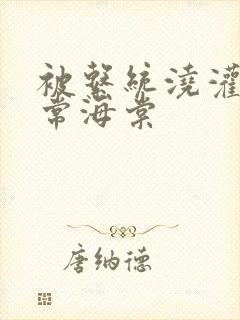 被繫统澆灌
常海棠
唐纳德